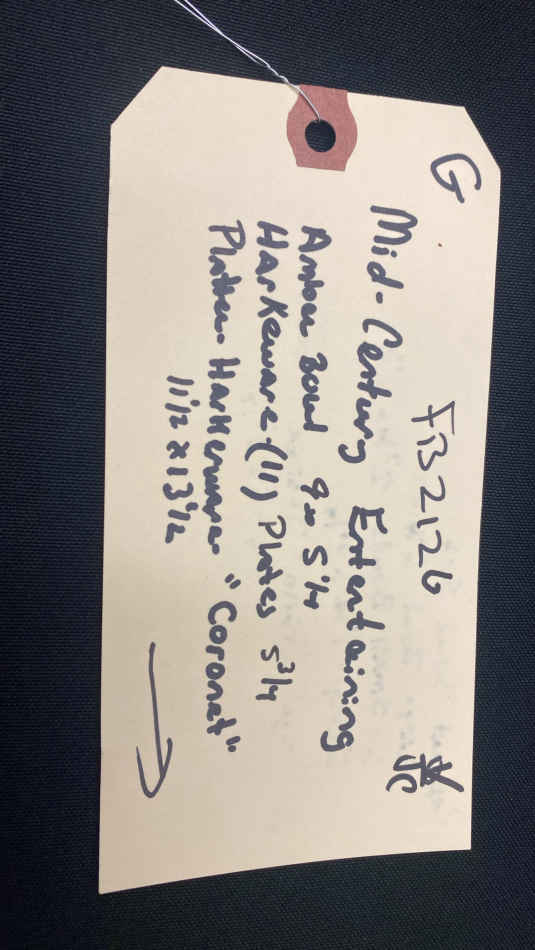 G FB2126 JC
Mid-Century Entertaining
Amber Bowl 9x 5 1/4
Harkerware (11) Plates 5 3/4
Platter Harkerware "Coronet"
11 1/2 x 13 1/2